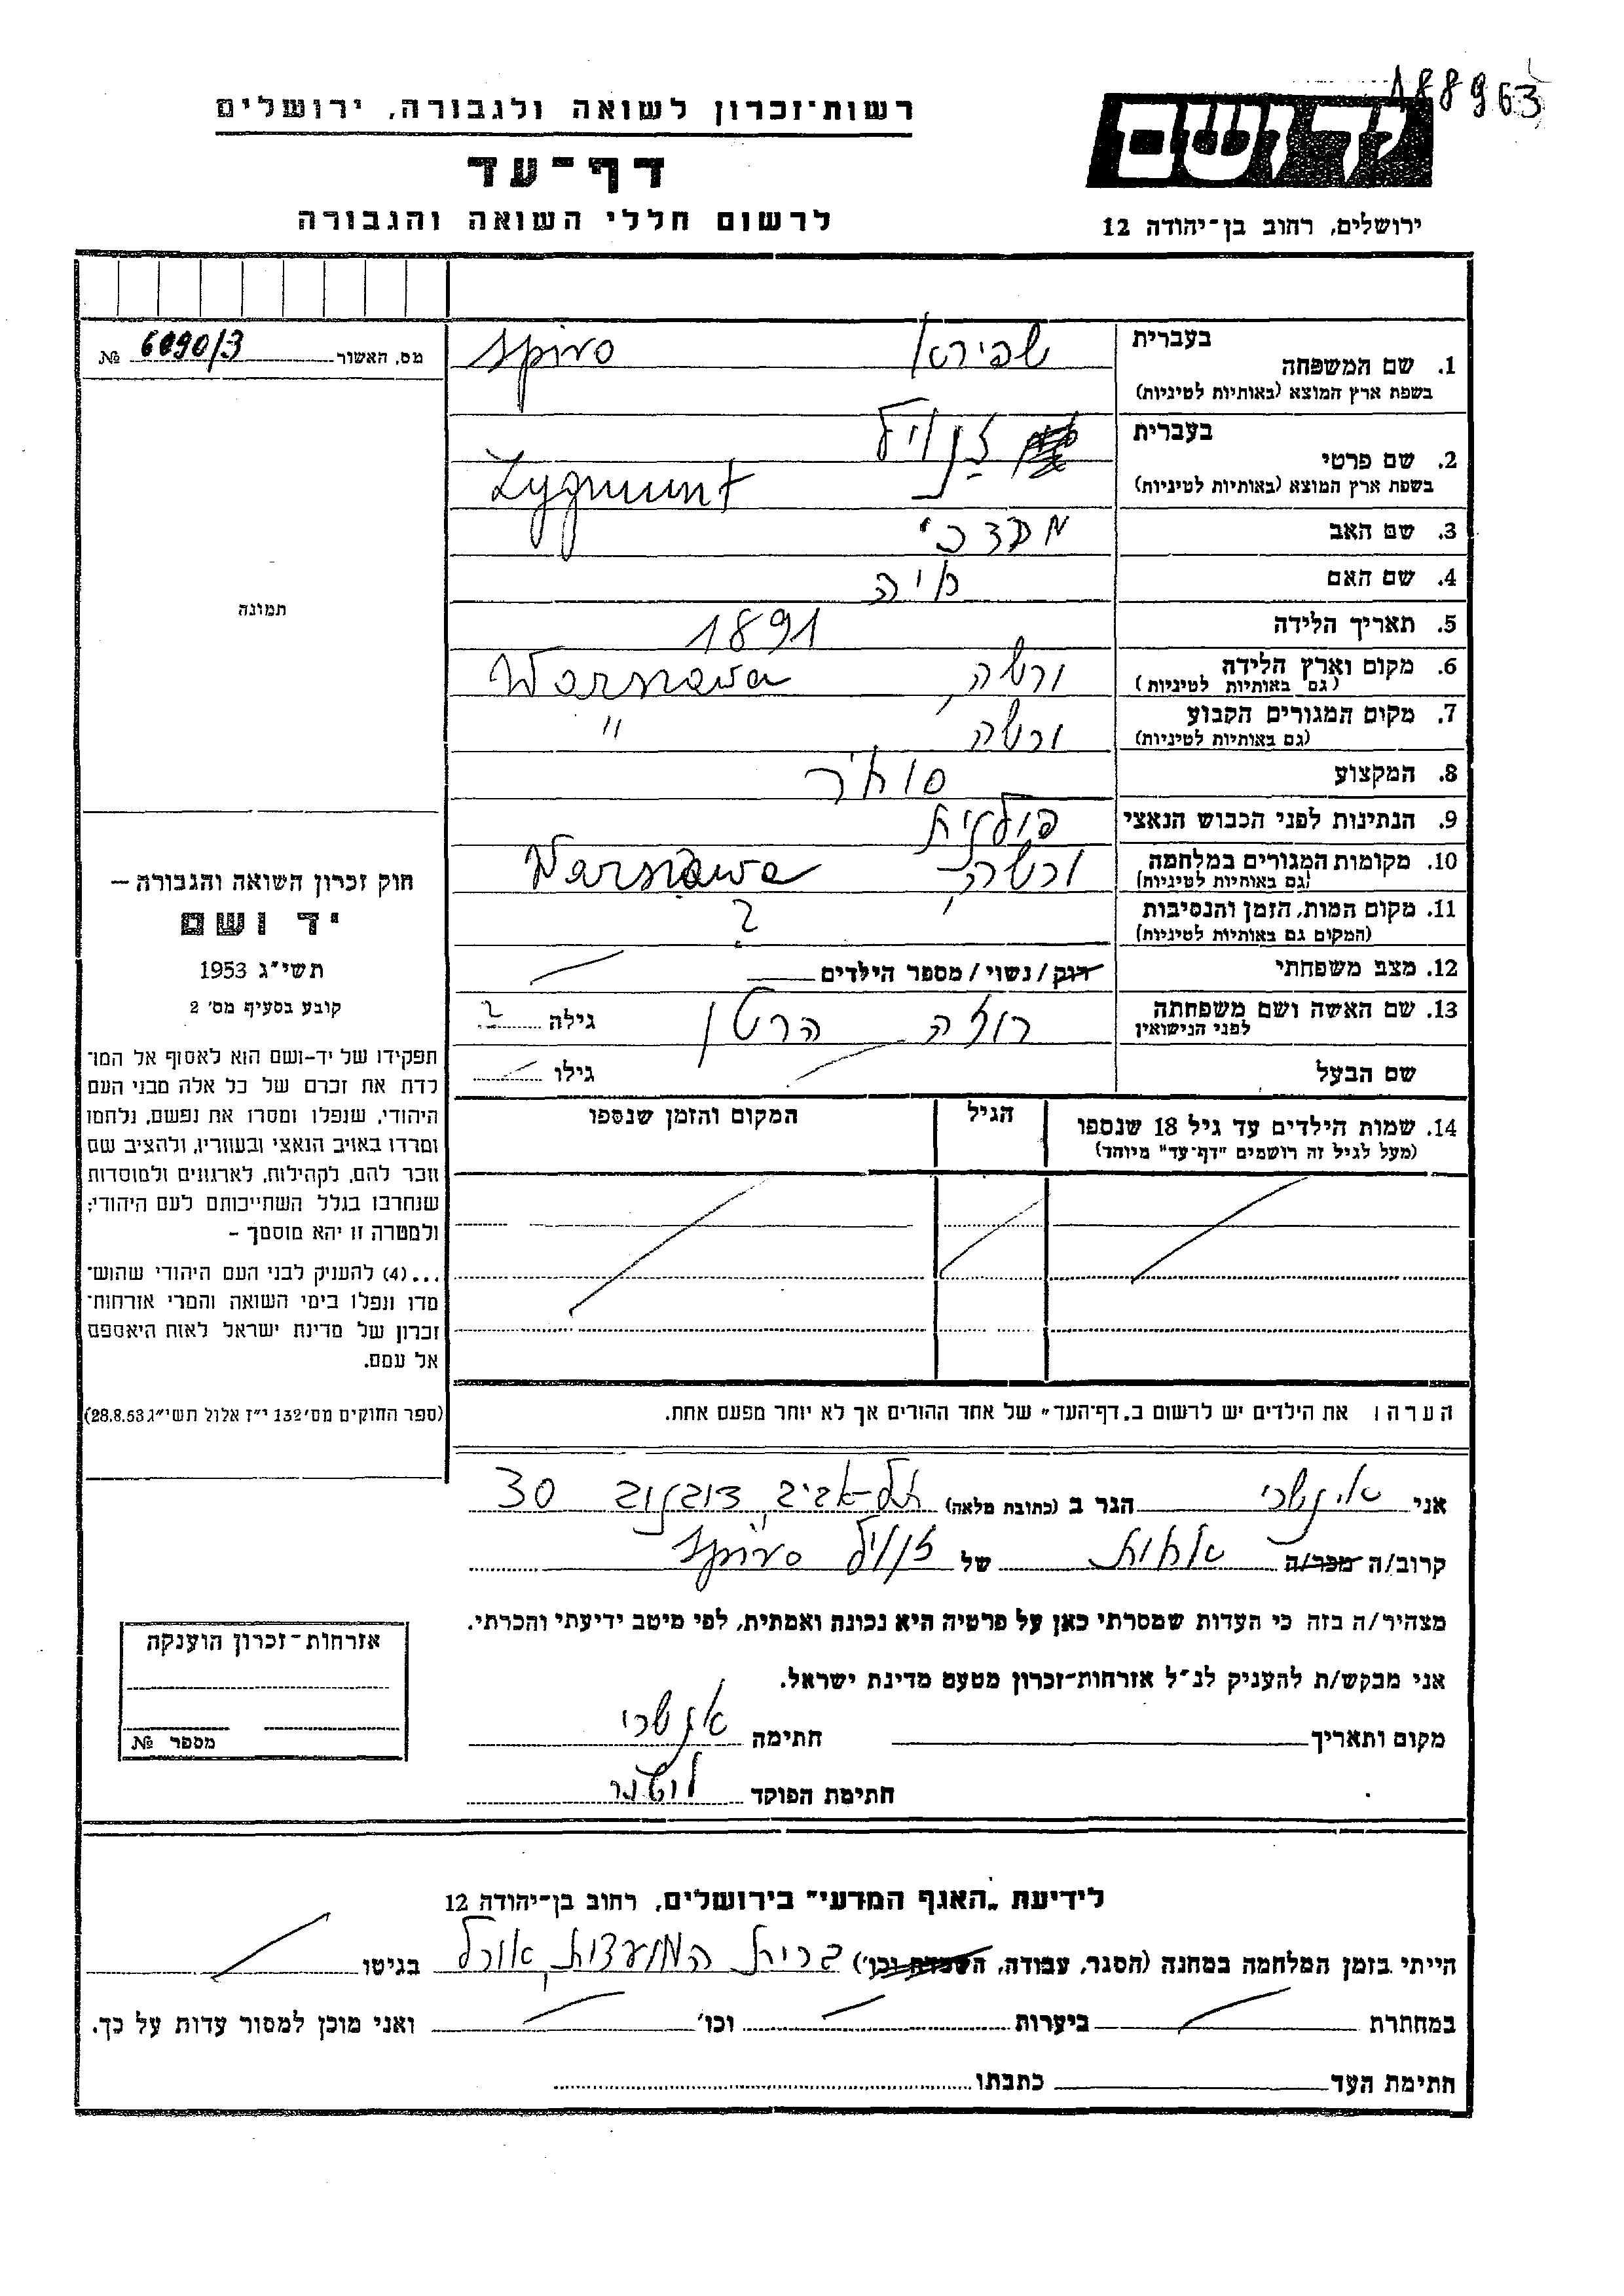 188963
רשות־זכרון לשואה ולגבורה, ירושלים
יד ושם
דף־עד
לרשום חללי השואה והגבורה
ירושלים, רחוב בן־יהודה 12
מס, האשור 6090/3 №
1. שם המשפחה בעברית שפירא Spiro
בשפת ארץ המוצא (באותיות לטיניות)
2. שם פרטי בעברית זנויל
בשפת ארץ המוצא (באותיות לטיניות) Zygmunt
3. שם האב מרדכי
4. שם האם חיה
5. תאריך הלידה 1891
6. מקום וארץ הלידה ורשה, Warszawa
(גם באותיות לטיניות)
7. מקום המגורים הקבוע ורשה "
(גם באותיות לטיניות)
8. המקצוע סוחר
9. הנתינות לפני הכבוש הנאצי פולנית
10. מקומות המגורים במלחמה ורשה, Warszawa
(גם באותיות לטיניות)
11. מקום המות, הזמן והנסיבות ?
(המקום גם באותיות לטיניות)
12. מצב משפחתי רוק/נשוי/מספר הילדים
13. שם האשה ושם משפחתה רוזה הרטן גילה ?
לפני הנישואין
שם הבעל גילו
14. שמות הילדים עד גיל 18 שנספו הגיל המקום והזמן שנספו
(מעל לגיל זה רושמים "דף־עד" מיוחד)
הערה: את הילדים יש לרשום ב„דף־העד" של אחד ההורים אך לא יותר מפעם אחת.
תמונה
חוק זכרון השואה והגבורה —
יד ושם
תשי"ג 1953
קובע בסעיף מס׳ 2
תפקידו של יד-ושם הוא לאסוף אל המו־
לדת את זכרם של כל אלה מבני העם
היהודי, שנפלו ומסרו את נפשם, נלחמו
ומרדו באויב הנאצי ובעוזריו, ולהציב שם
וזכר להם, לקהילות, לארגונים ולמוסדות
שנחרבו בגלל השתייכותם לעם היהודי;
ולמטרה זו יהא מוסמך –
...(4) להעניק לבני העם היהודי שהוש־
מדו ונפלו בימי השואה והמרי אזרחות־
זכרון של מדינת ישראל לאות היאספם
אל עמם.
(ספר החוקים מס׳ 132 י"ז אלול תשי"ג 28.8.53)
אני הגר ב (כתובת מלאה) תל-אביב, דובנוב 30
קרוב/ה מכר/ה אחות של זנויל Spiro
מצהיר/ה בזה כי העדות שמסרתי כאן על פרטיה היא נכונה ואמתית, לפי מיטב ידיעתי והכרתי.
אני מבקש/ת להעניק לנ"ל אזרחות-זכרון מטעם מדינת ישראל.
מקום ותאריך חתימה
חתימת הפוקד
אזרחות-זכרון הוענקה
מספר №
לידיעת „האגף המדעי" בירושלים, רחוב בן־יהודה 12
הייתי בזמן המלחמה במחנה (הסגר, עבודה, השמדה וכו׳) ברית המועצות, אורל בגיטו
במחתרת ביערות וכו׳ ואני מוכן למסור עדות על כך.
חתימת העד כתבתו